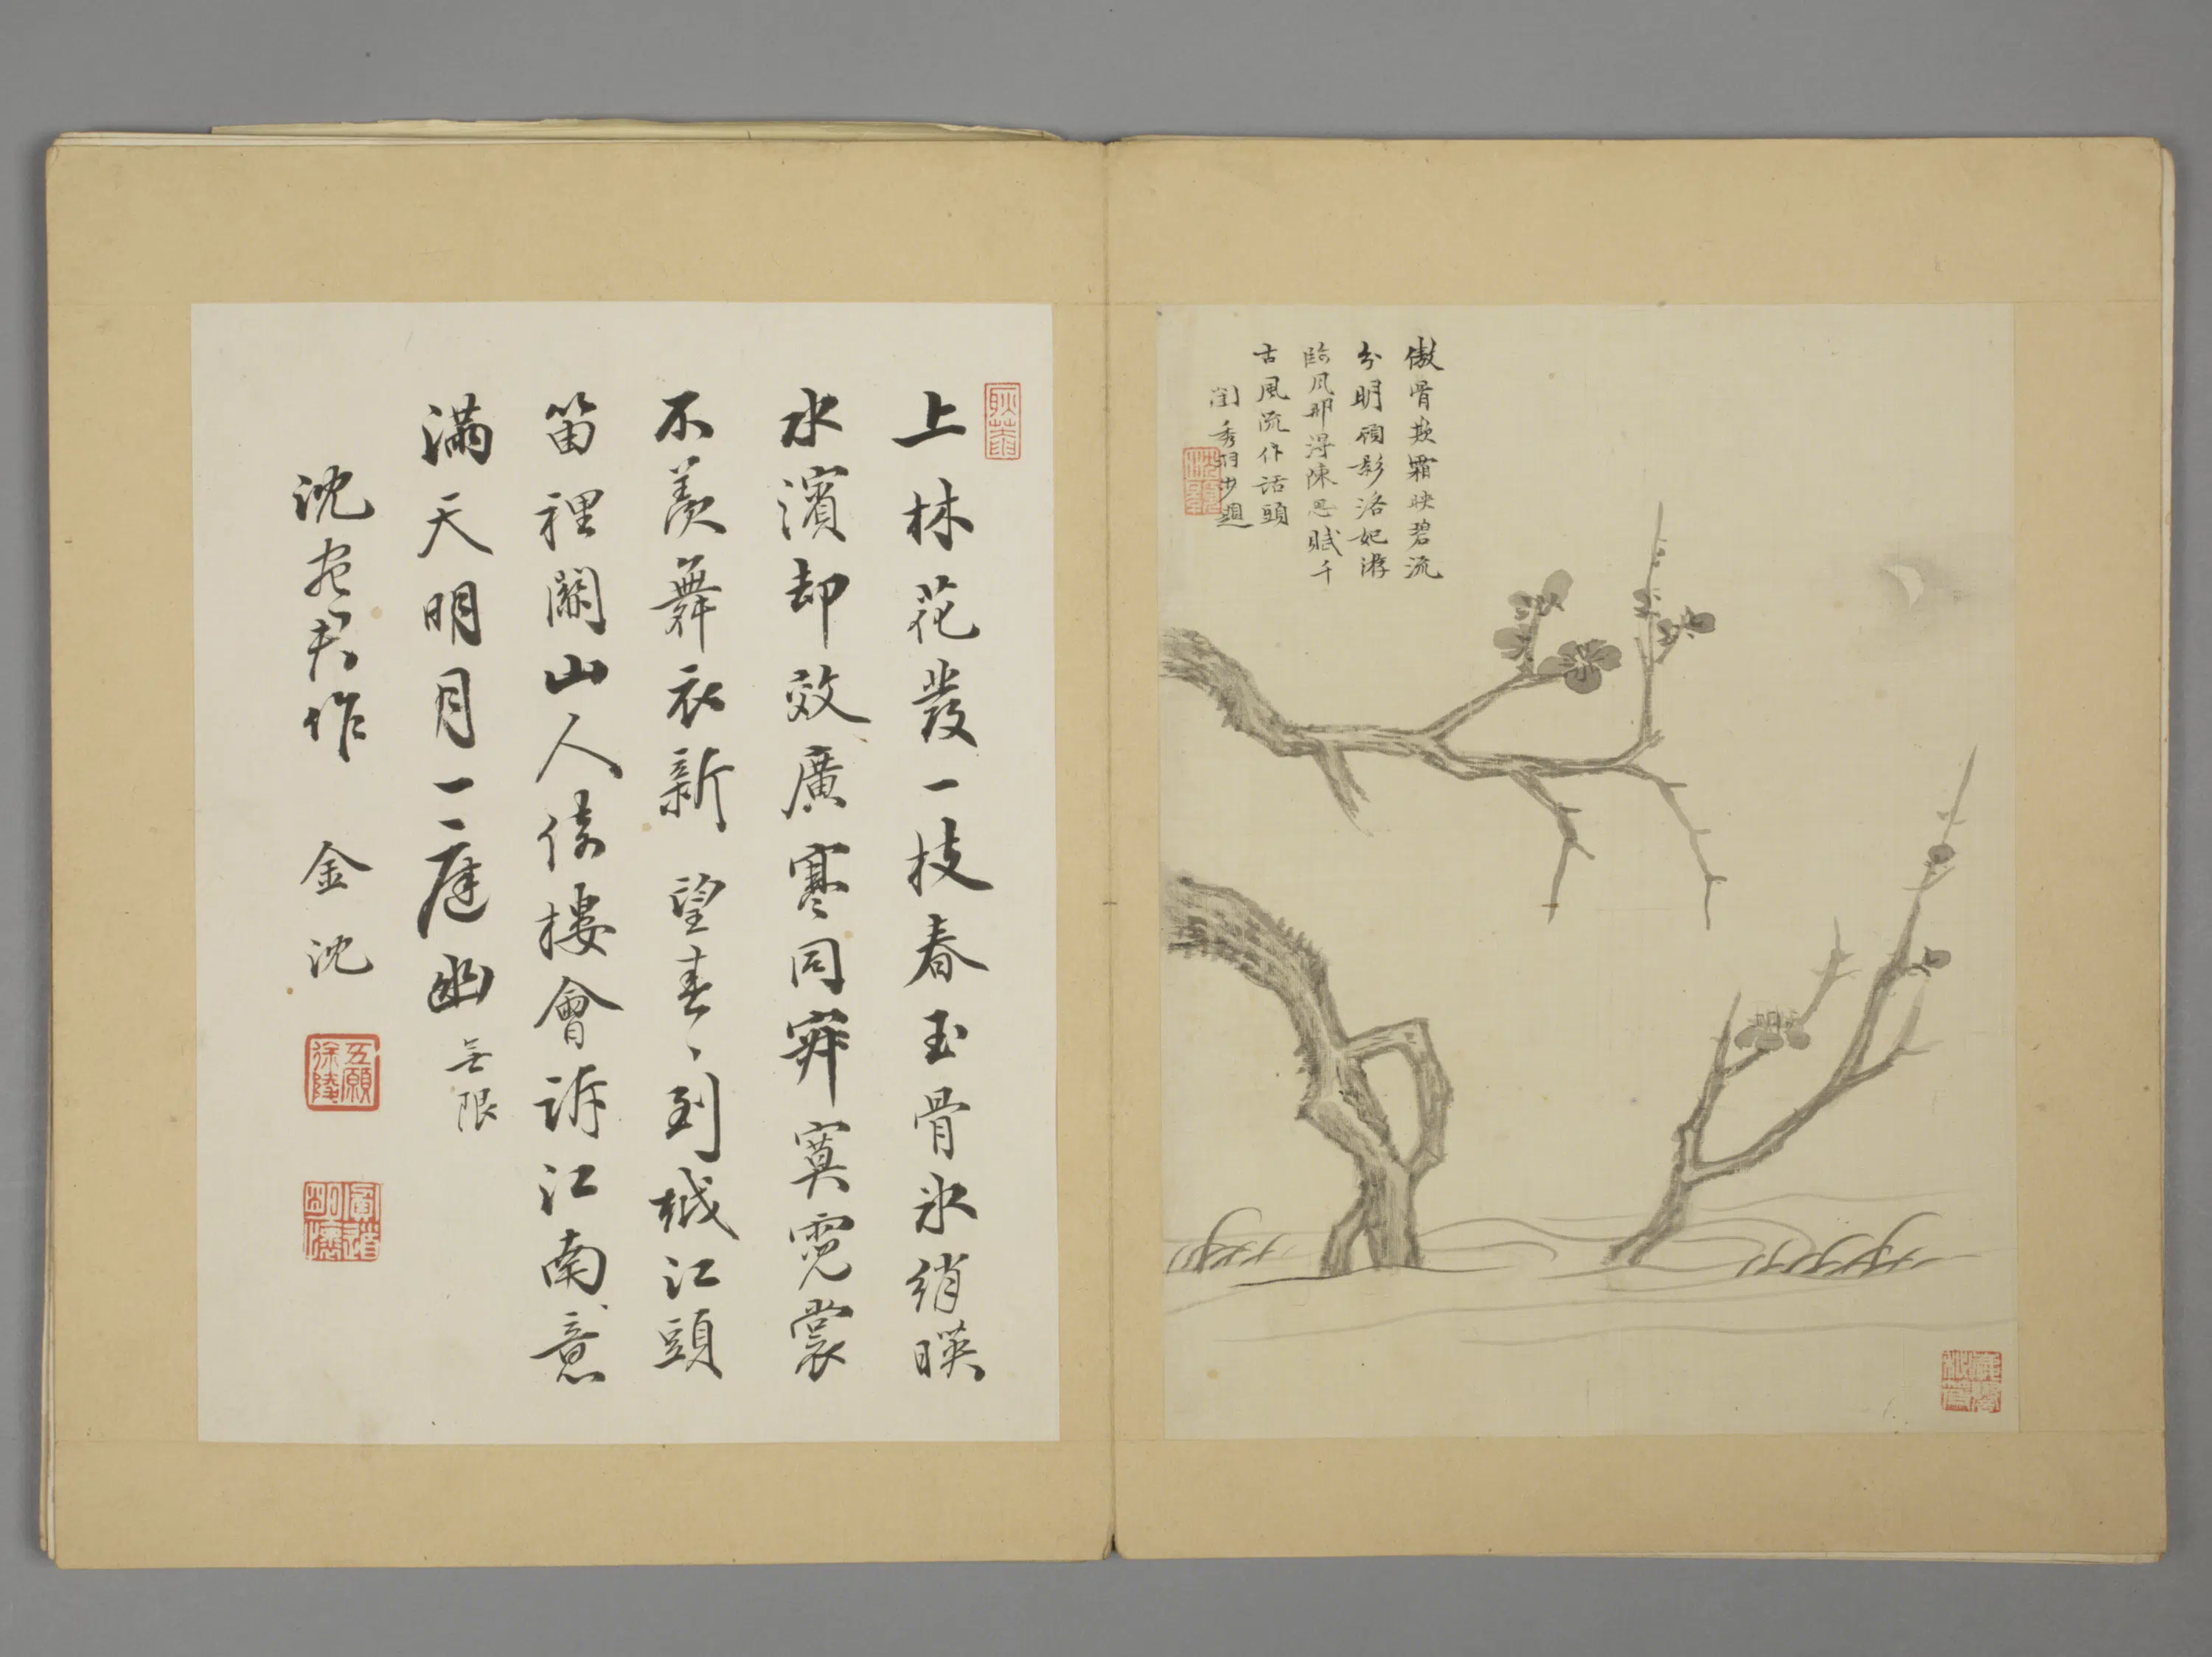 傲骨欺霜映碧流
分明顧影洛妃游
臨風那得陳思賦千
古風流作話頭
閨秀羽步題
上林花發一枝春玉骨氷綃暎
水濱却效廣寒同寂寞霓裳
不羨舞衣新望春〻到越江頭
笛裡關山人倚樓會訴江南意
滿天明月一庭幽
無限
沈宛君作 金沈
五願
徐陵